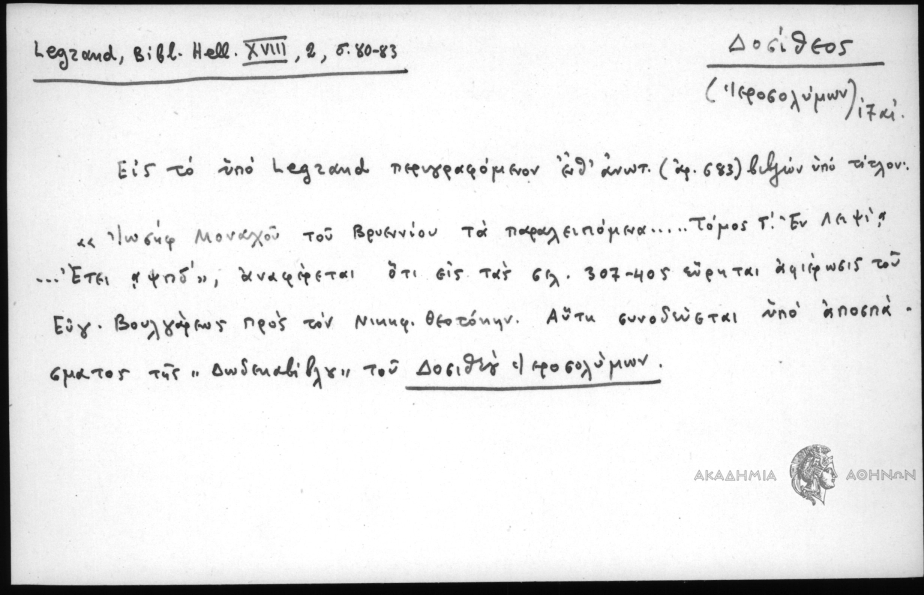 Legrand, Bibl. Hell. XVIII, 2, σ. 80-83
Δοσίθεος
(Ἱεροσολύμων) ιζ αἰ.
Εἰς τὸ ὑπὸ Legrand περιγραφόμενον ἐνθ' ἀνωτ. (ἀρ. 683) βιβλίον ὑπὸ τίτλον:
«Ἰωσὴφ Μοναχοῦ τοῦ Βρυεννίου τὰ παραλειπόμενα..... Τόμος Γ'. Ἐν Λειψίᾳ
...Ἔτει ͵αψπδ'», ἀναφέρεται ὅτι εἰς τὰς σελ. 307-405 εὕρηται ἀφιέρωσις τοῦ
Εὐγ. Βουλγάρεως πρὸς τὸν Νικηφ. Θεοτόκην. Αὕτη συνοδεύεται ὑπὸ ἀποσπά-
σματος τῆς "Δωδεκαβίβλου" τοῦ Δοσιθέου Ἱεροσολύμων.
ΑΚΑΔΗΜΙΑ ΑΘΗΝΩΝ